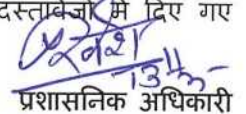 दस्तावेजो मे दिए गए
प्रशासनिक अधिकारी